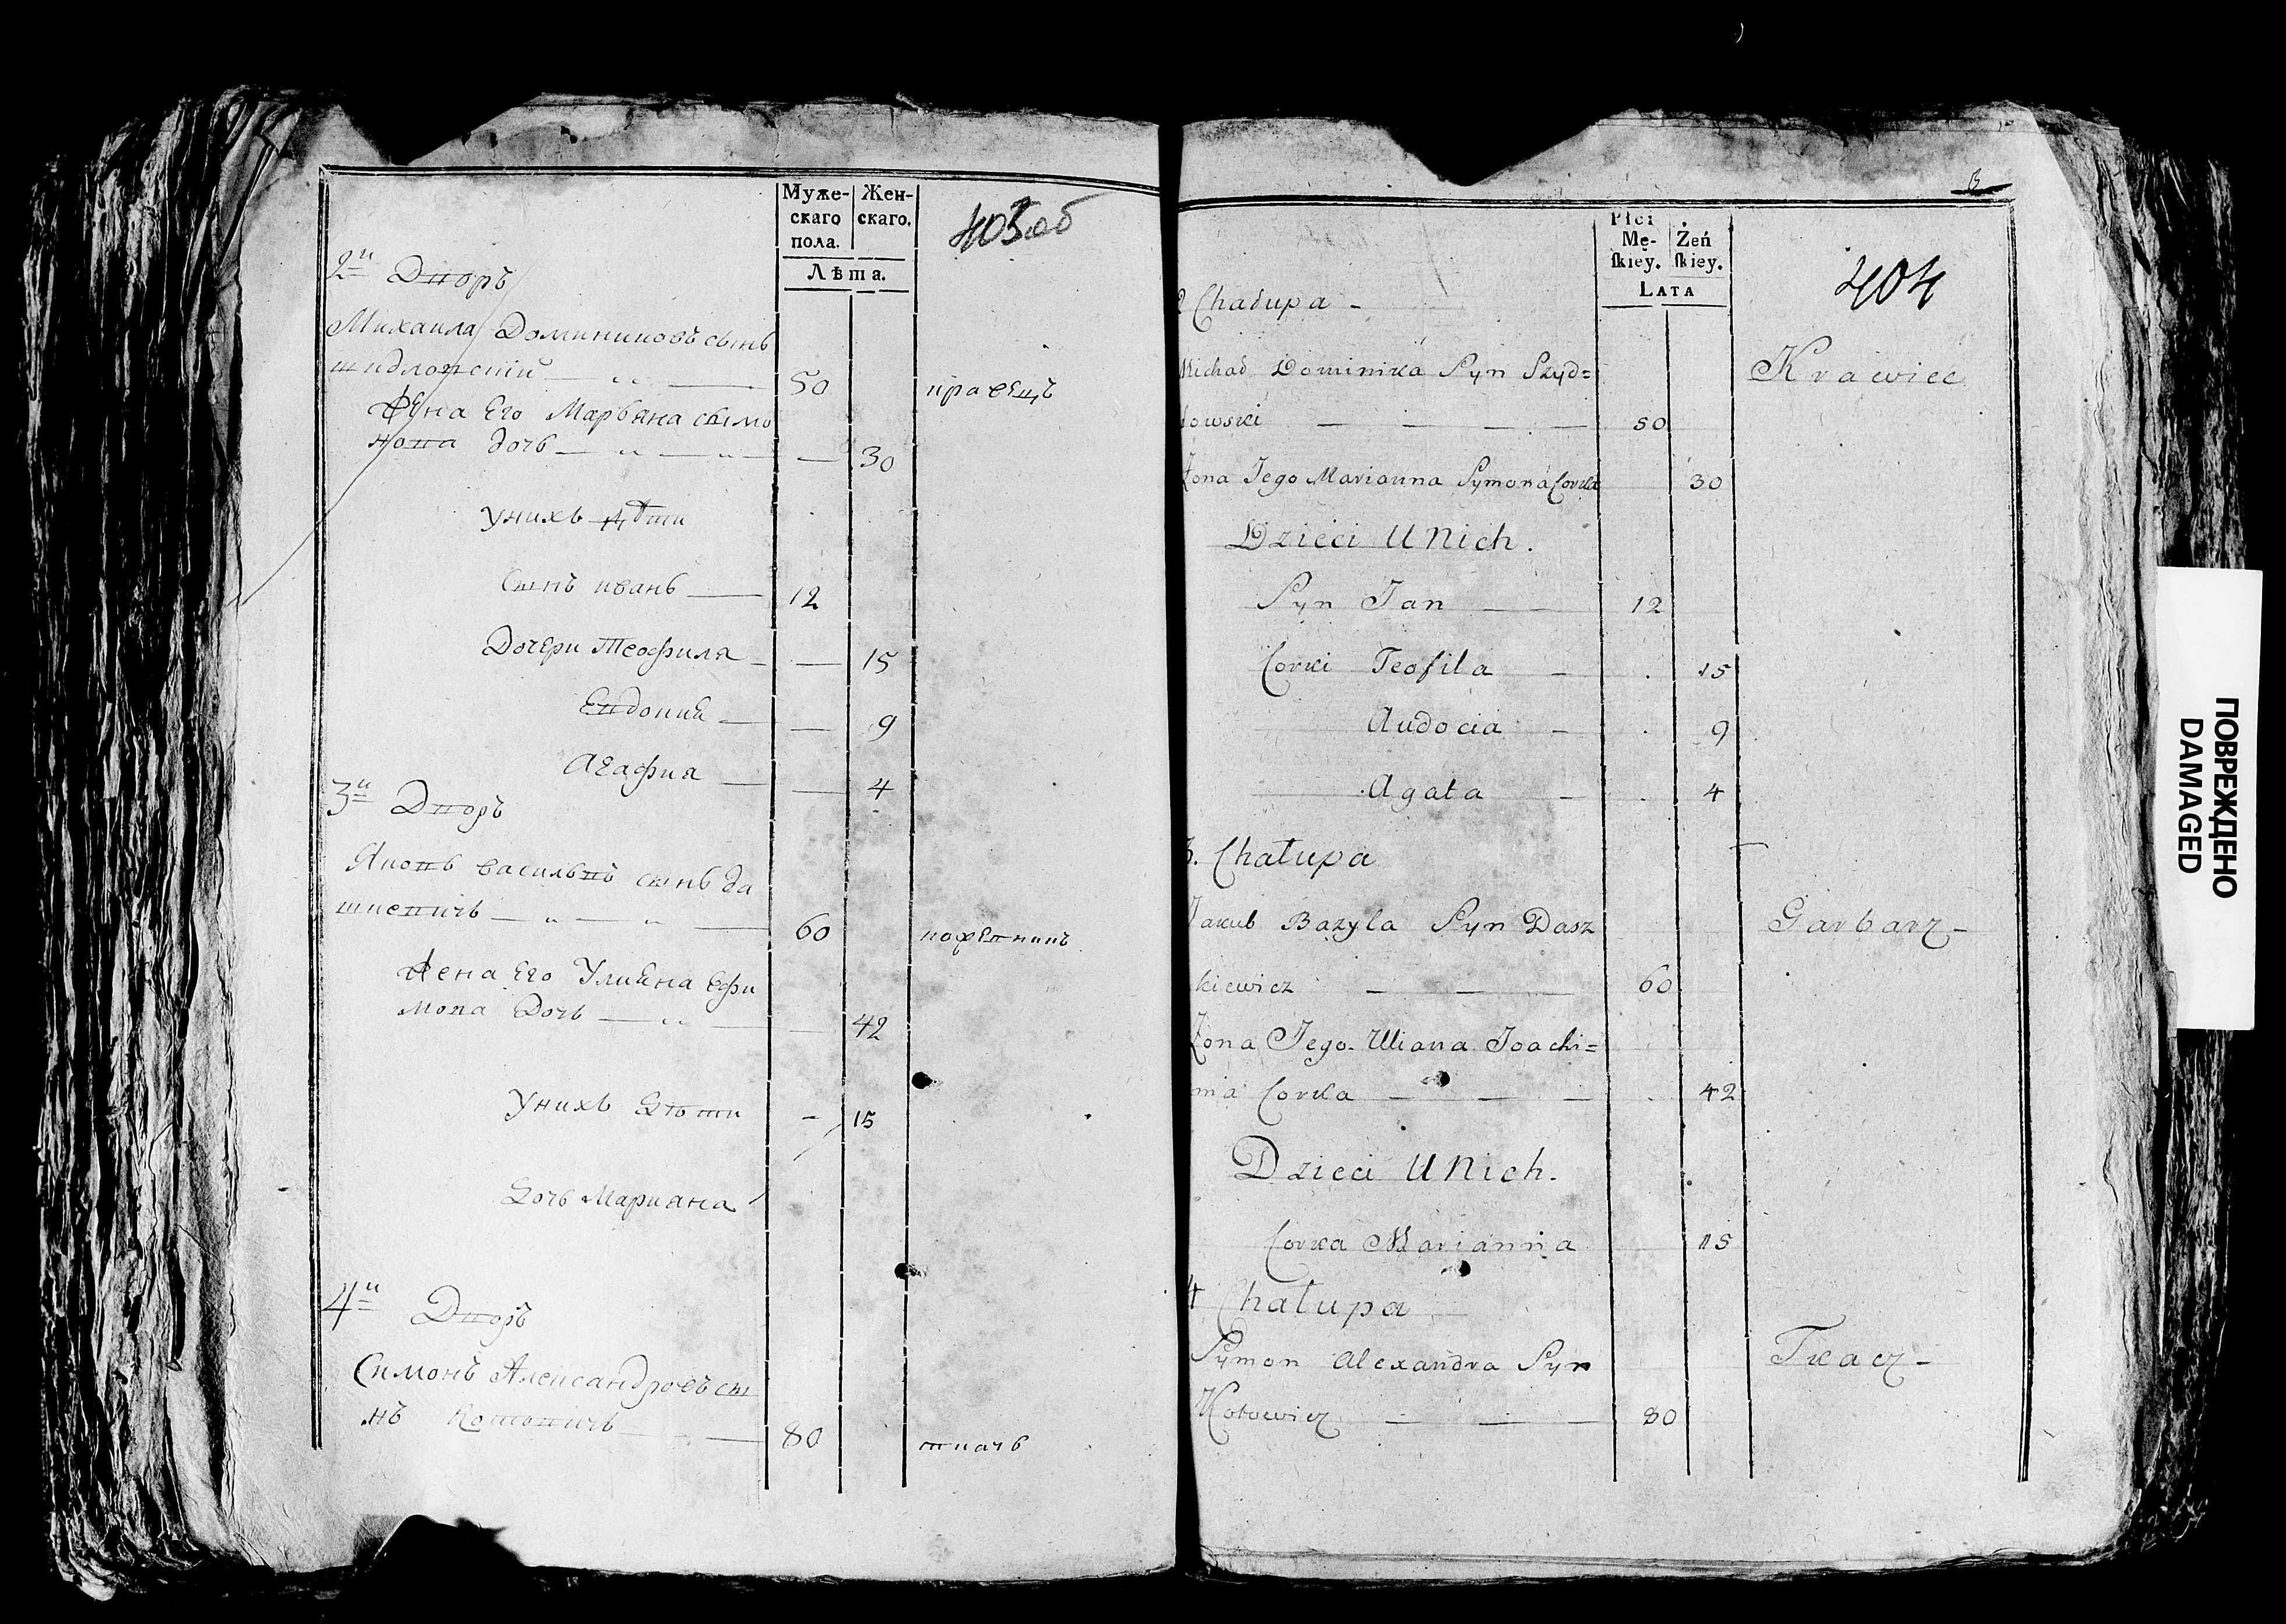 Муже-
скаго
пола.
Жен-
скаго.
Лѣта.
403 об
2й Дворъ
Михаила Доминиковъ сынъ
шидловский 50 кравецъ
Жена Его Марьяна сымо
нова дочь 30
Унихъ дѣти
Сынъ иванъ 12
Дочери Теофиля 15
Евдокия 9
Агафия 4
3й Дворъ
Яковъ васильвъ сынъ да
шкевичъ 60
Жена Его Улияна Ефи
мова Дочь 42
Унихъ Дѣти - 15
Дочь Марияна
4й Дворъ
Симонъ Александровъ сы
нъ Котовичъ 80 ткачь
6
Płci
Mę-
ſkiey.
Żeń
ſkiey.
LATA
404
2 Chałupa -
Michał Dominika Syn Szyd=
łowski 50 Krawiec
Żona Jego Marianna Symona Corka 30
Dzieci U Nich.
Syn Jan 12
Corki Teofila 15
Audocia 9
Agata 4
3. Chałupa
Jakub Bazyla Syn Dasz Garbarz -
kiewicz 60
Żona Jego Uliana Joachi=
ma Corka 42
Dzieci U Nich.
Corka Marianna 15
4 Chałupa
Symon Alexandra Syn Tkacz -
Kotowicz 80
ПОВРЕЖДЕНО
DAMAGED